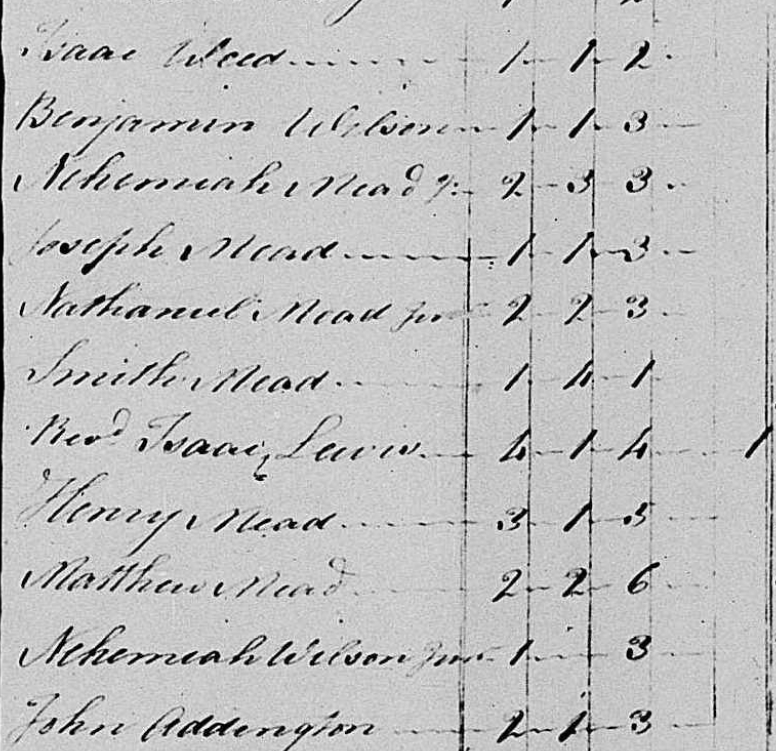 Isaac Weed 1 1 2
Benjamin Wilson 1 1 3
Nehemiah Mead Jr 2 3 3
Joseph Mead 1 1 3
Nathaniel Mead Junr 2 2 3
Smith Mead 1 4 1
Revd Isaac Lewis 4 1 4 1
Henry Mead 3 1 5
Matthew Mead 2 2 6
Nehemiah Wilson Junr 1 3
John Addington 2 1 3